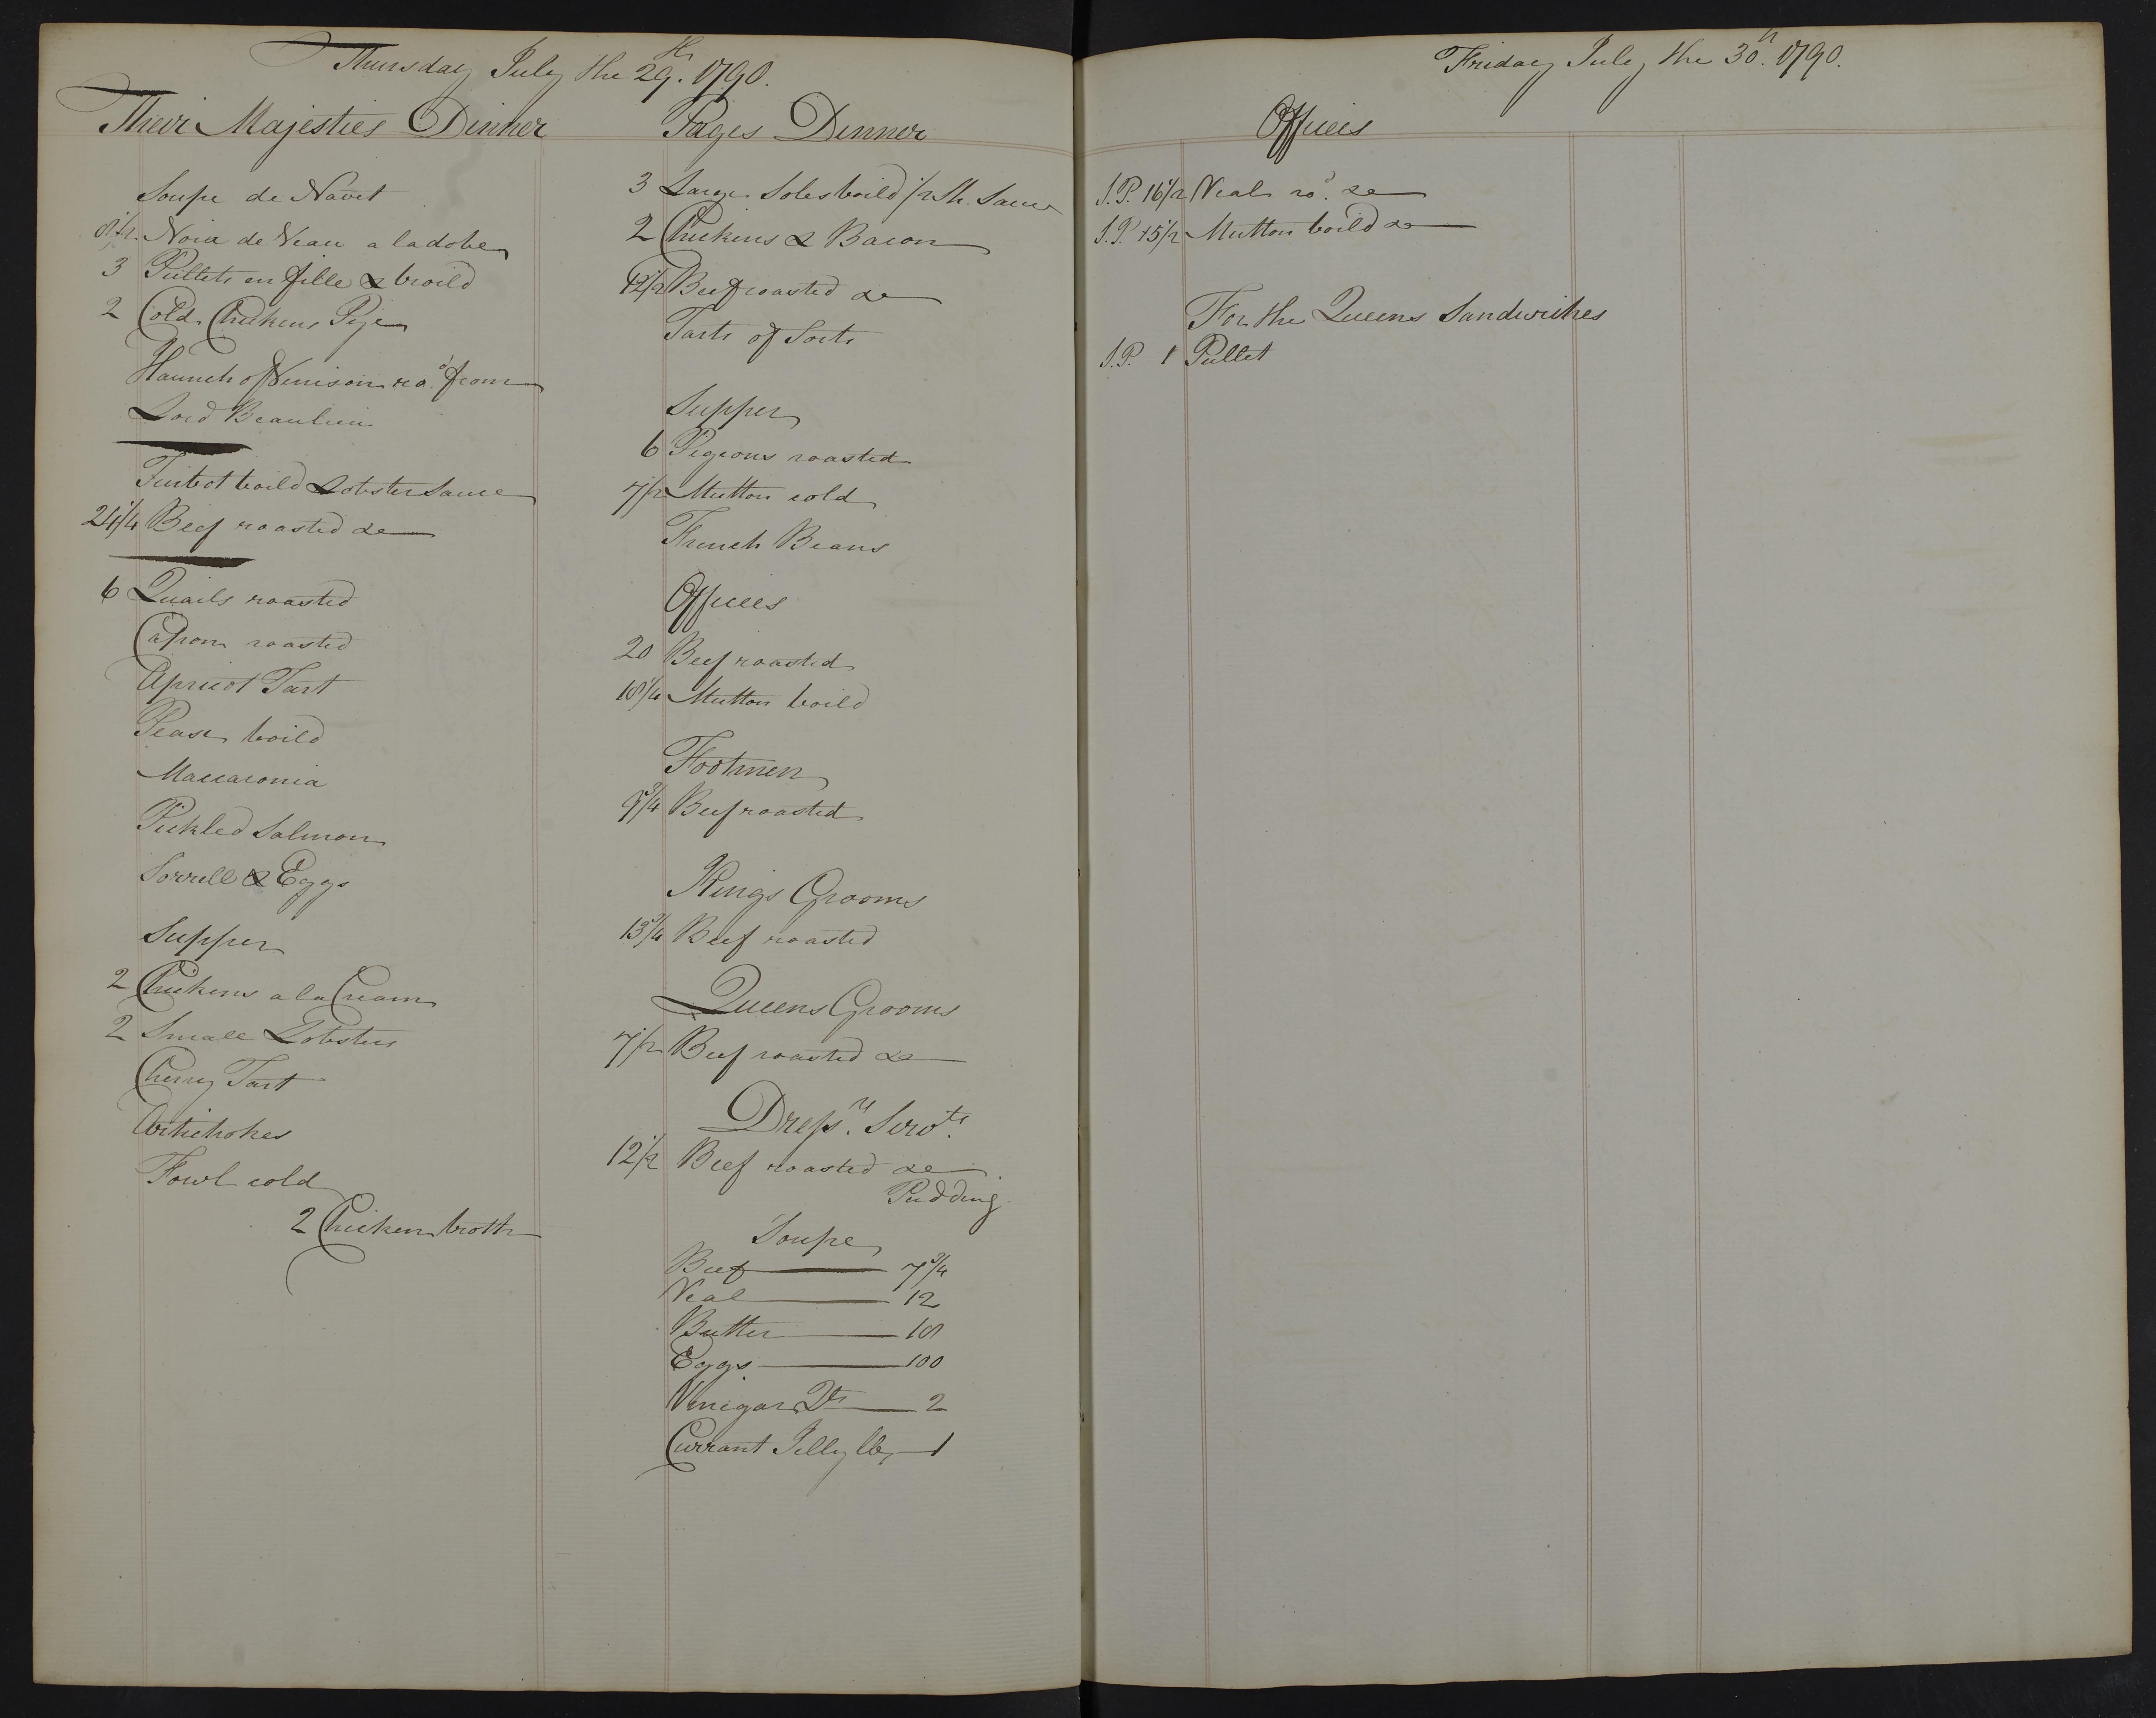 Thursday July the 29th. 1790.
Their Majesties Dinner
Soupe de Navet
8 1/2 Noix de Veau a la dobe
3 Pullets en fille & broild
2 Cold Chickens Pye
Haunch of Venison ro.d from
Lord Beaulieu
Turbot boild Lobster Sauce
21 1/4 Beef roasted &c
6 Quails roasted
Capon roasted
Apricot Tart
Pease boild
Maccaronia
Pickled Salmon
Sorrell & Eggs
Supper
2 Chickens a la Cream
2 Small Lobsters
Cherry Tart
Artichokes
Fowl cold
2 Chicken broth
Pages Dinner
3 Large Soles boild Sauce
2 Chickens & Bacon
12 1/2 Beef roasted &c
Tarts of Sorts
Supper
6 Pigeons roasted
7 1/2 Mutton cold
French Beans
Offices
20 Beef roasted
18 1/4 Mutton boild
Footmen
9 3/4 Beef roasted
Kings Grooms
13 3/4 Beef roasted
Queens Grooms
7 1/2 Beef roasted &c
Dress.rs Serv.ts
12 1/2 Beef roasted &c
Pudding
Soupe
Beef 7 3/4
Veal 12
Butter 18
Eggs 100
Vinigar Qts 2
Currant Jelly lb 1
Friday July the 30th. 1790.
Offices
S.P. 16 1/2 Veal ro.d &c
S.P. 15 1/2 Mutton boild &c
For the Queens Sandwiches
S.P. 1 Pullet